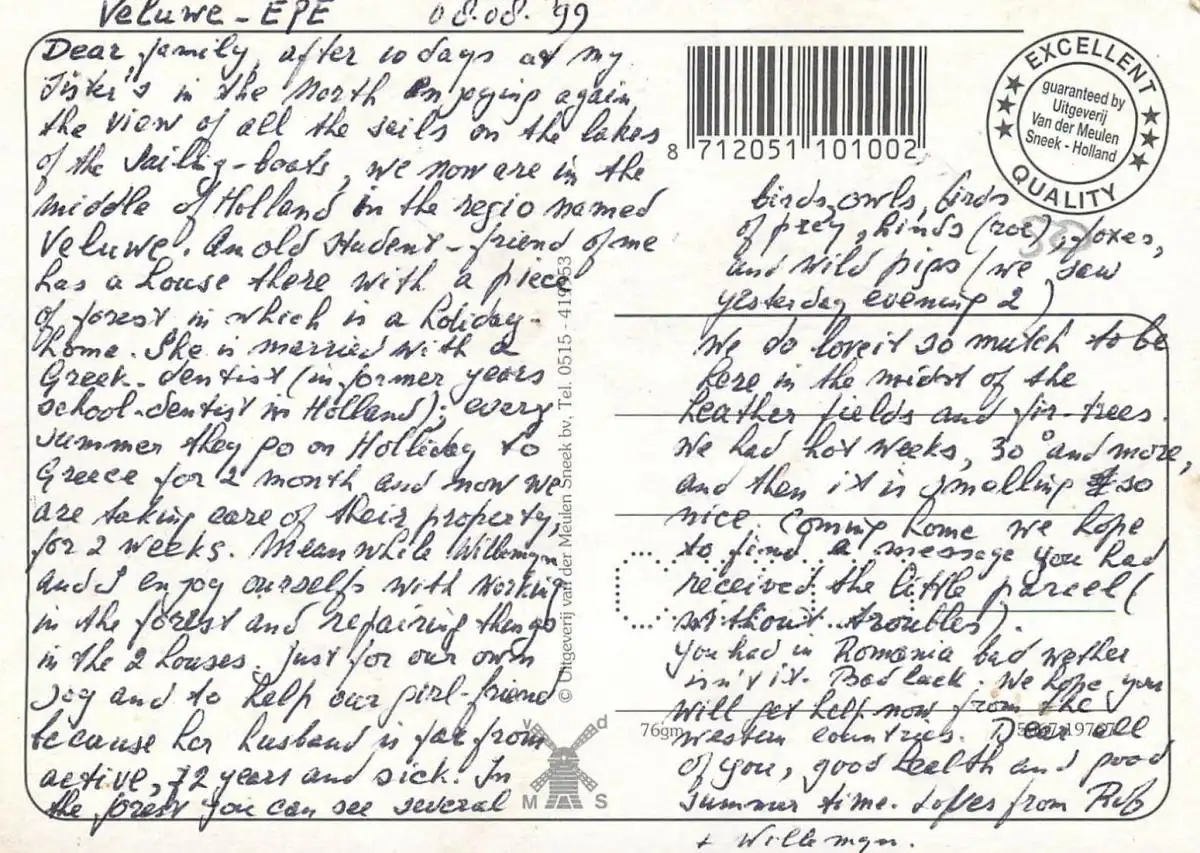 Veluwe - EPE 08.08.'99
Dear family, after 10 days at my
sister's in the North enjoying again
the view of all the sails on the lakes
of the sailing-boats, we now are in the
middle of Holland in the regio named
Veluwe. An old student-friend of me
has a house there with a piece
of forest in which is a holiday-
home. She is married with a
Greek-dentist (in former years
school-dentist in Holland); every
summer they go on Holliday to
Greece for 2 month and now we
are taking care of their property,
for 2 weeks. Meanwhile Willemyn
and I enjoy ourselfs with working
in the forest and repairing things
in the 2 houses. Just for our own
joy and to help our girl-friend
because her husband is far from
active, 72 years and sick. In
the forest you can see several
8 712051 101002
EXCELLENT
guaranteed by
Uitgeverij
Van der Meulen
Sneek - Holland
QUALITY
birds, owls, birds
of prey, hinds (roe), foxes,
and wild pigs (we saw
yesterday evening 2)
We do love it so mutch to be
here in the midst of the
heather fields and fir-trees.
We had hot weeks, 30° and more,
and then it is smelling so
nice. Coming home we hope
to find a message you had
received the little parcel (
without troubles).
You had in Romania bad wether
isn't it. Bad luck. We hope you
will get help now from the
western countries. Dear all
of you, good health and good
summer time. Loves from Rob
+ Willemyn.
© Uitgeverij van der Meulen Sneek bv, Tel. 0515 - 419953
v d
M S
76gm